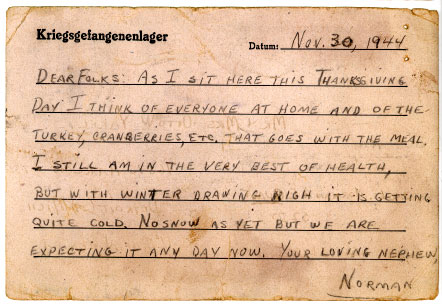 Kriegsgefangenenlager
Datum: Nov. 30, 1944
DEAR FOLKS: AS I SIT HERE THIS THANKSGIVING
DAY I THINK OF EVERYONE AT HOME AND OF THE
TURKEY, CRANBERRIES, ETC. THAT GOES WITH THE MEAL.
I STILL AM IN THE VERY BEST OF HEALTH,
BUT WITH WINTER DRAWING NIGH IT IS GETTING
QUITE COLD. NO SNOW AS YET BUT WE ARE
EXPECTING IT ANY DAY NOW. YOUR LOVING NEPHEW,
NORMAN